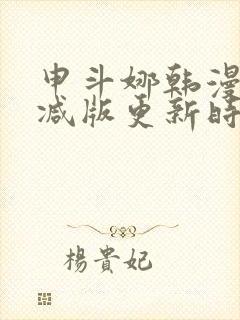 申斗娜韩漫
减版更新时
楊貴妃